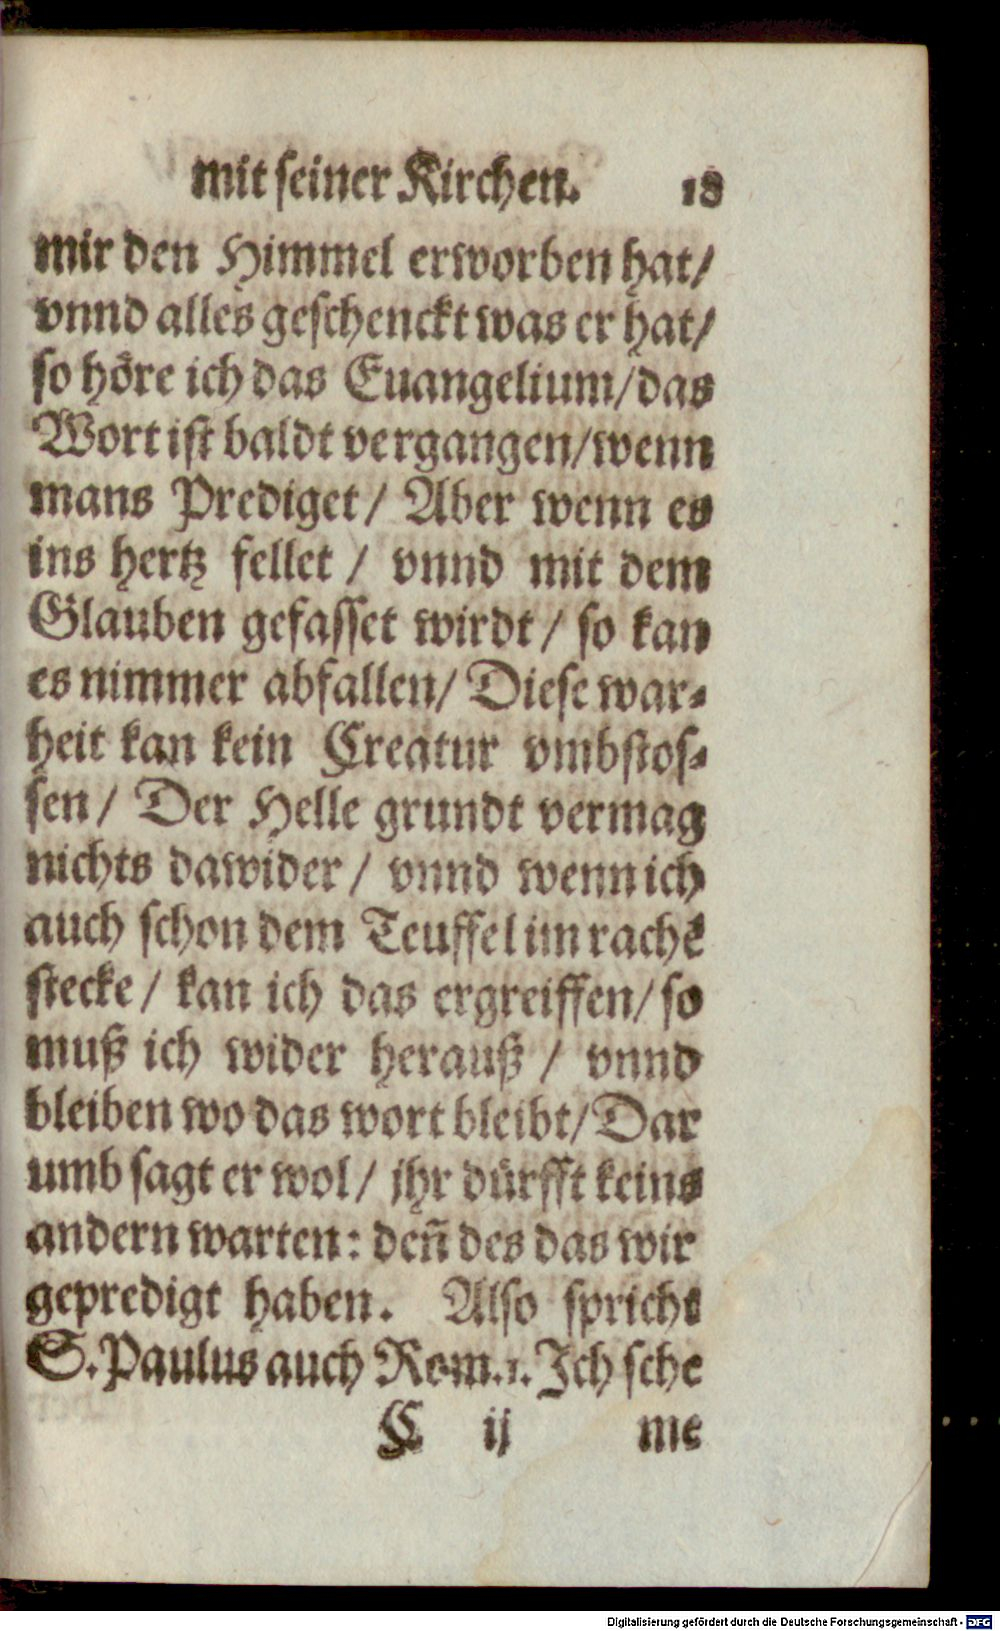 mit seiner Kirchen. 18
mir den Himmel erworben hat/
vnnd alles geschenckt was er hat/
so höre ich das Euangelium/das
Wort ist baldt vergangen/wenn
mans Prediget/ Aber wenn es
ins hertz fellet / vnnd mit dem
Glauben gefasset wirdt / so kan
es nimmer abfallen/ Diese war-
heit kan kein Creatur vmbstos-
sen / Der Helle grundt vermag
nichts dawider / vnnd wenn ich
auch schon dem Teuffel im rachē
stecke / kan ich das ergreiffen/ so
muß ich wider herauß / vnnd
bleiben wo das wort bleibt/ Dar
umb sagt er wol/ jhr dürfft keins
andern warten: deñ des das wir
gepredigt haben. Also spricht
S. Paulus auch Rom.1. Ich sche
C ij me
Digitalisierung gefördert durch die Deutsche Forschungsgemeinschaft - DFG